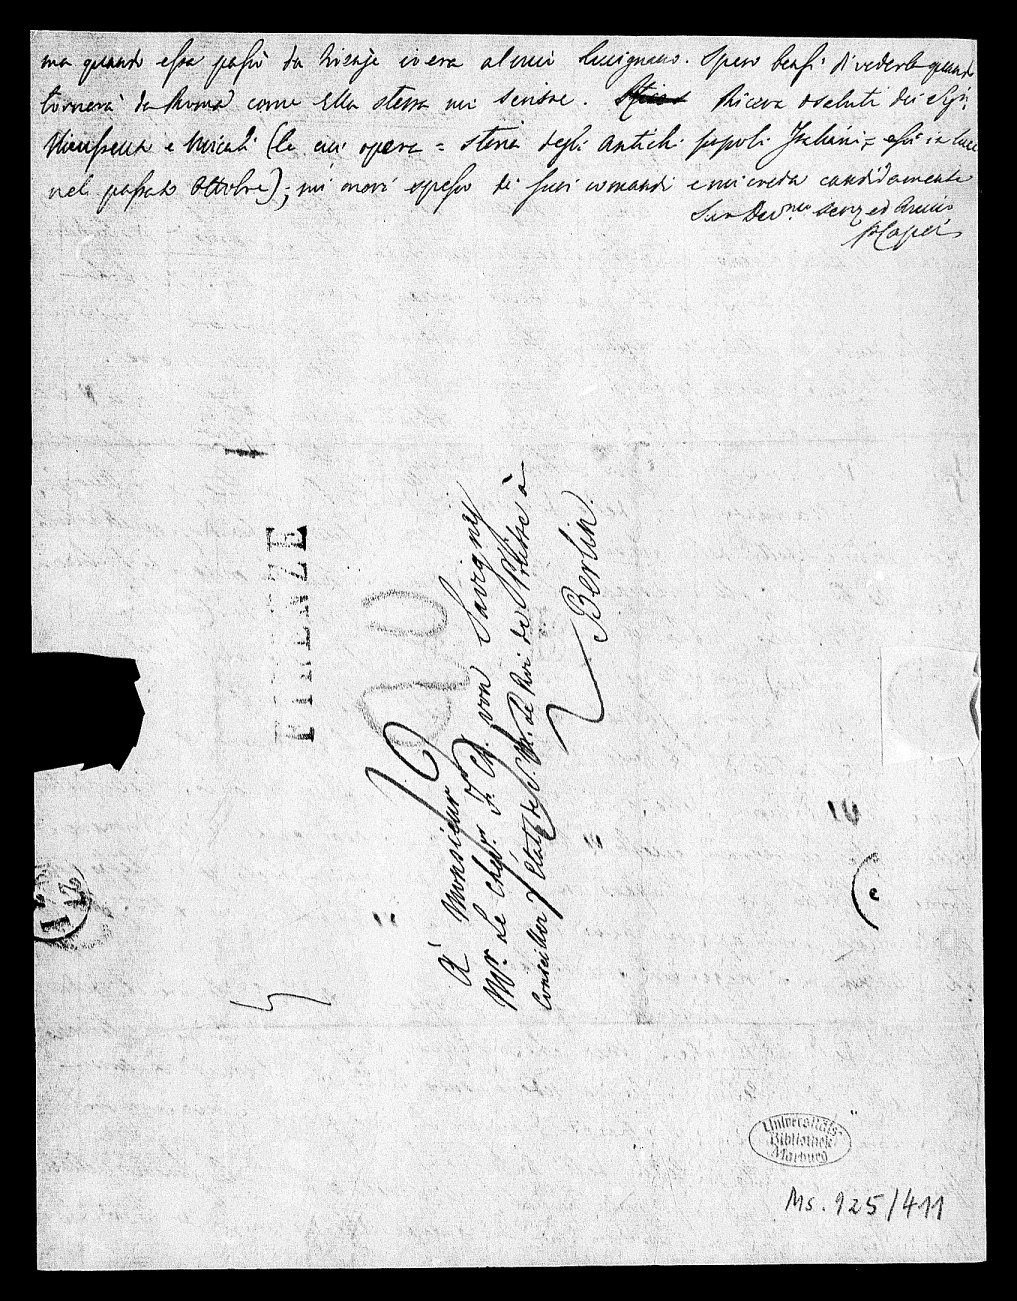 ma quando essa passò da Firenze io era al mio Lucignano. Spero bensì di vederla quando
tornerà da Roma come Ella stessa mi scrisse. Riceva i saluti dei Sigri
e Micali (la cui opera = storia degli antichi popoli Italiani = escì in luce
nel passato Ottobre); mi onori spesso di suoi comandi e mi creda candidamente
Suo Devmo serv ed Amico
PCapei
FIRENZE
À Monsieur
Mr. Le Chevr. F. Ch. von Savigny
Conseiller d'état de S. M. Le Roi de Prusse à
Berlin.
Universitäts-
Bibliothek
Marburg
Ms. 925/411